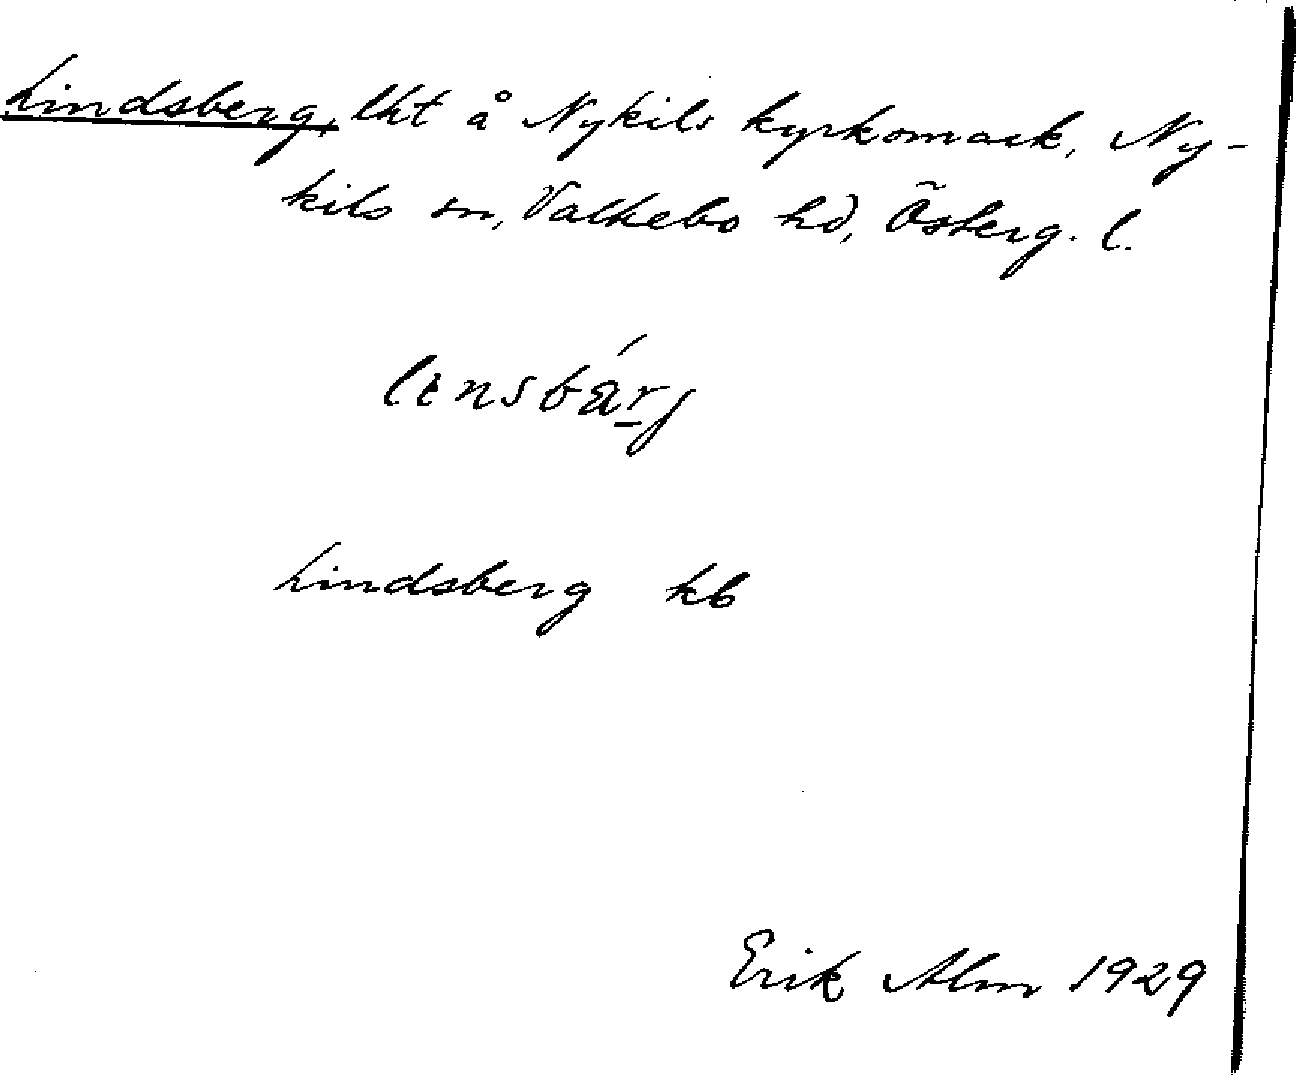 Lindsberg, lht å Nykils kyrkomark, Ny-
kils sn, Valkebo hd, Österg. l.
lensbárj
Lindsberg kb
Erik Alm 1929